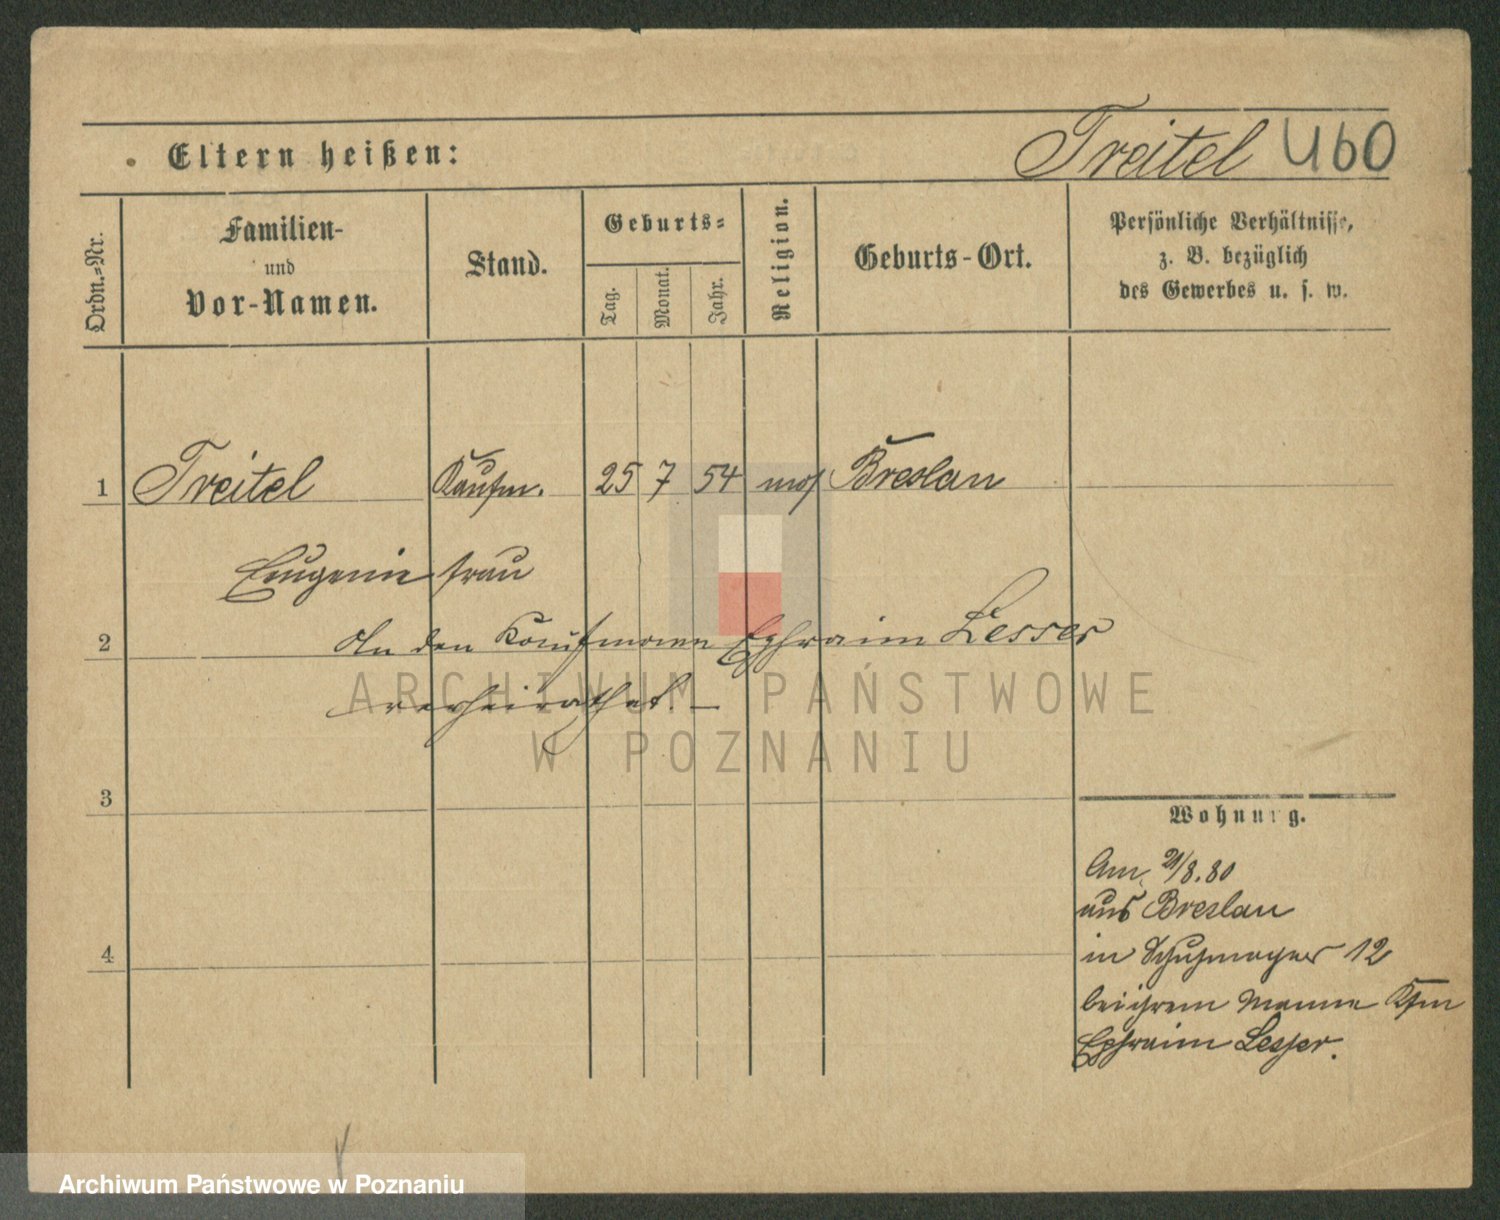 Eltern heißen:
Treitel 460
Ordn.=Nr.
Familien-
und
Vor-Namen.
Stand.
Geburts=
Tag.
Monat.
Jahr.
Religion.
Geburts-Ort.
Persönliche Verhältnisse,
z. B. bezüglich
des Gewerbes u. s. w.
1 Treitel Kaufm. 25 7 54 mos Breslau
Eugenie frau
2 An den Kaufmann Ephraim Lesser
verheirathet. —
ARCHIWUM PAŃSTWOWE
W POZNANIU
3
Wohnung.
Am 21/8.80
aus Breslau
4
in Schuhmacher 12
bei ihrem Manne Kfm
Ephraim Lesser.
Archiwum Państwowe w Poznaniu